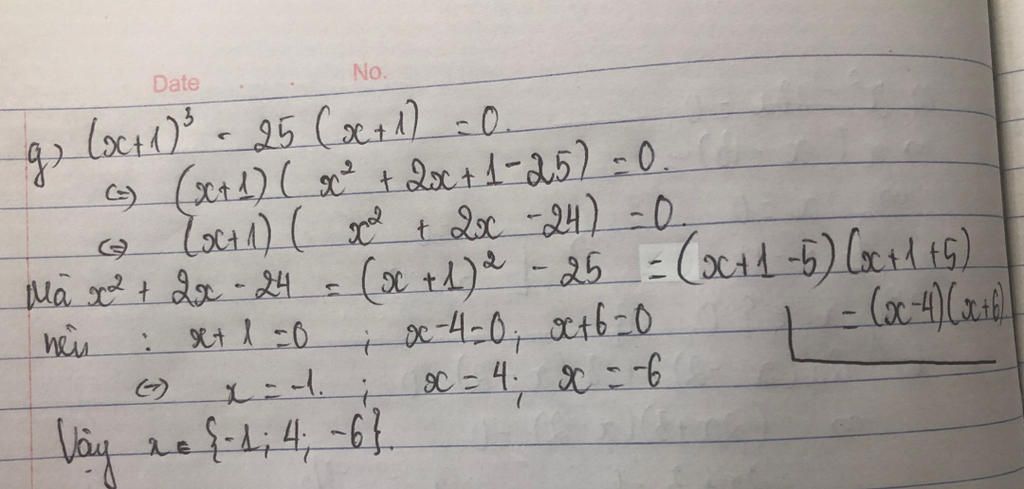 Date . . No.
g) (x+1)³ - 25 (x+1) = 0.
⇔ (x+1) ( x² + 2x + 1 - 25) = 0.
⇔ (x+1) ( x² + 2x - 24) = 0.
Mà x² + 2x - 24 = (x + 1)² - 25 = (x+1-5) (x+1+5)
= (x-4)(x+6)
nên : x+1 =0 ; x-4=0; x+6=0
⇔ x = -1. ; x = 4; x = -6
Vậy x ∈ {-1; 4; -6}.